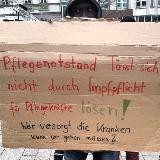 Pflegenotstand lässt sich
nicht durch Impfpflicht
für Pflegekräfte lösen!
Wer versorgt die Kranken
wenn wir gehen müssen?